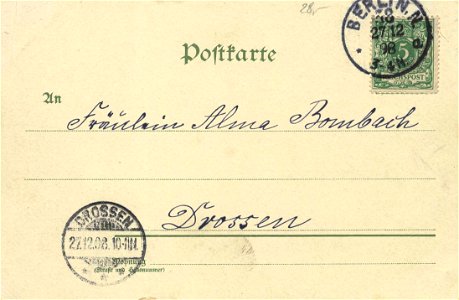 28,-
BERLIN. N.
28
27.12
98
3-4N.
5
Postkarte
An
Fräulein Alma Bombach
Drossen
DROSSEN
27.12.98. 10-11N.
Wohnung
(Straße und Hausnummer)